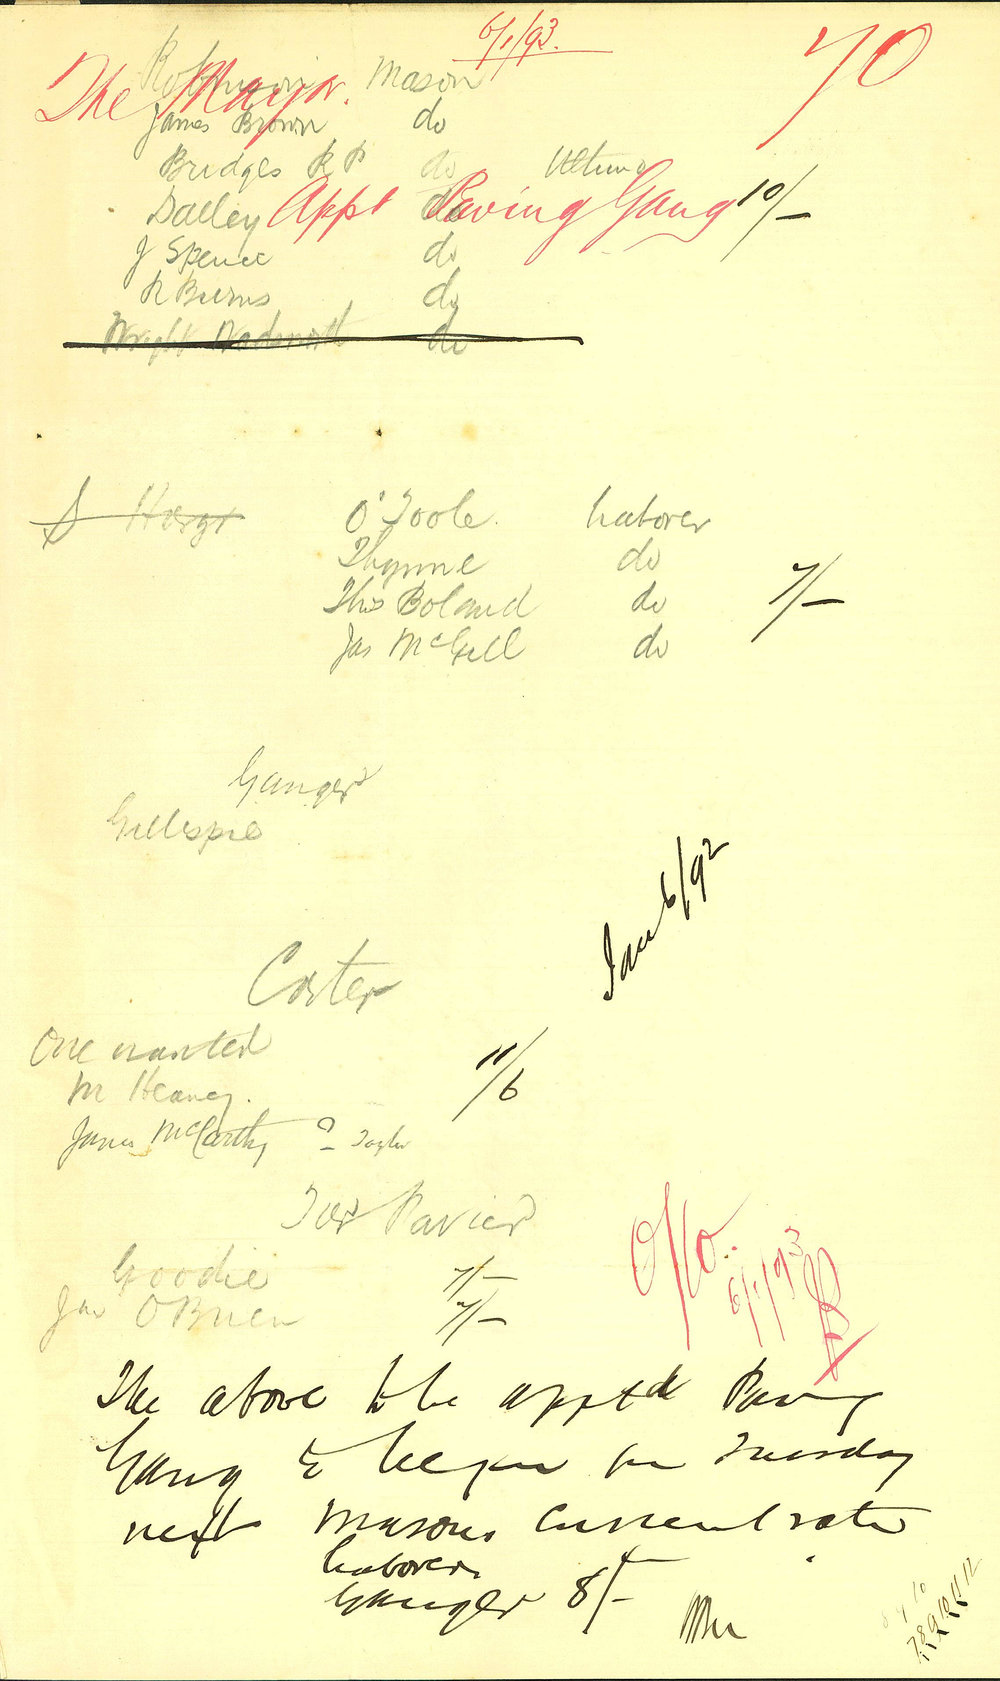 6/1/93.
70
The Mayor.
Robinson Mason
James Brown do
Bridges R P do
Appt Paving Gang
Dalley do 10/-
J Spence do
R Burns do
Wright Wadsworth do
S Hoyt O'Toole. Laborer
Thynne do
Thos Boland do 7/-
Jas McGill do
Ganger
Gillespie
Jan 6/92
Carter
One wanted
M Heaney. 11/6
James McCarthy ? Taylor
For Pavier
Goodie 7/-
Jas O'Brien 7/-
6/1/93
The above to be apptd Paving
Gang & begin on Tuesday
next Masons Current rates
Laborers
Ganger 8/-
7 8 9 10 11 12